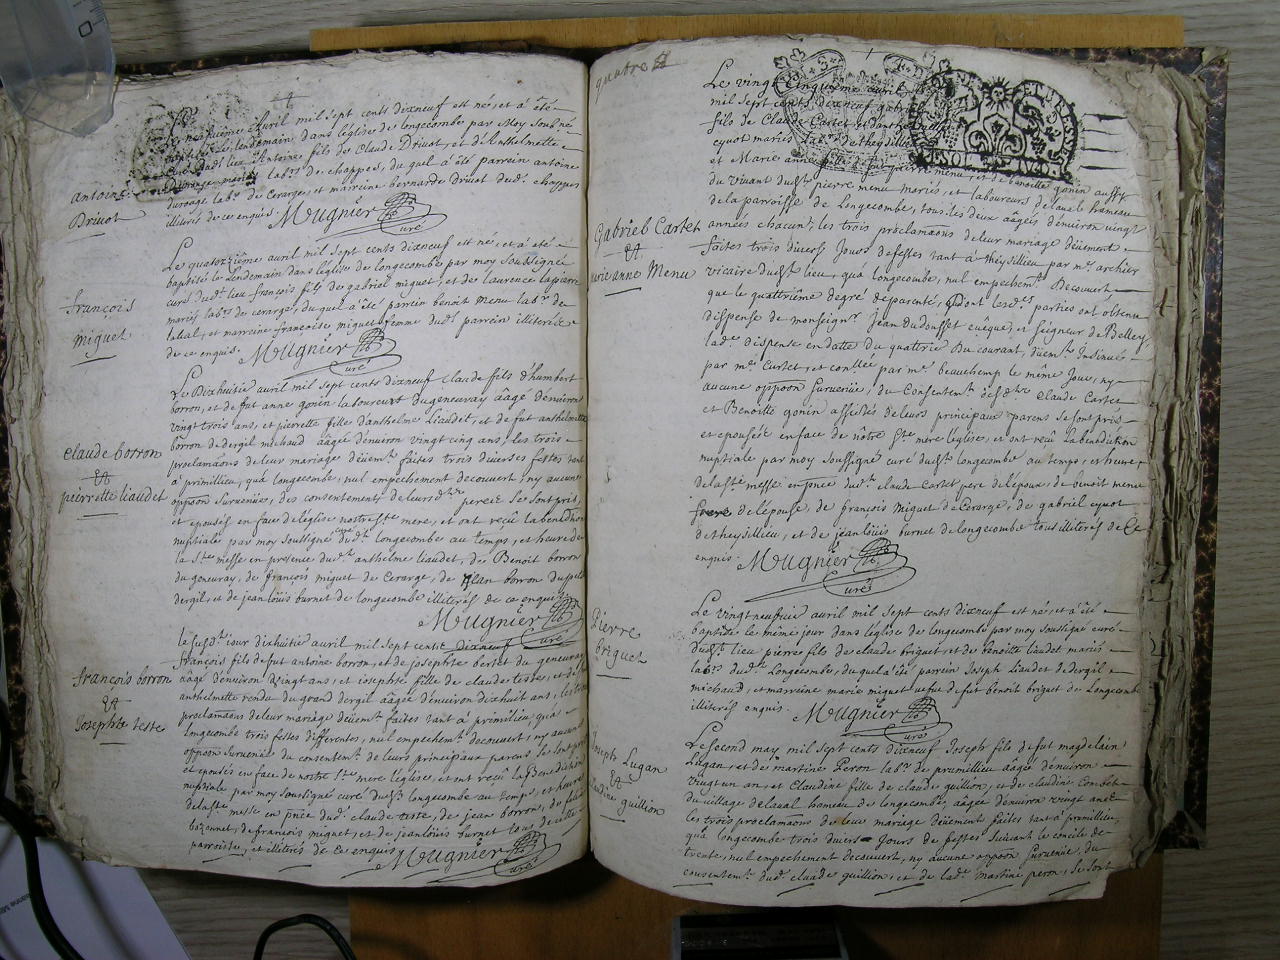 avril mil sept cents dixneuf est né, et à été
lendemain dans l'eglise de longecombe par Moy Soub.né
lieu Antoine fils de Claude Drivot, et d'Anthelmette
lab.rs de choppes, du quel à été parrein antoine
Antoine
duroage lab.r de Cerarges, et marreine bernarde Drivot dud.t choppes
Drivot
illiterés de ce enquis. Mugnier
curé
Le quatorzième avril mil sept cents dixneuf est né, et à été
baptisé le lendemain dans l'eglise de longecombe par moy Soubsigné
curé dud.t lieu françois fils de gabriel miguet, et de laurence lapierre
françois
mariés lab.rs de cerarge, du quel à été parrein benoit Menu lab.r de
miguet
labal, et marreine françoise miguet femme dud.t parrein illiterés
de ce enquis. Mugnier
curé
Le Dixhuitie avril mil sept cents dixneuf Claude fils d'humbert
borron, et de fut anne gonin laboureurs du genevray âagé d'enuiron
vingt trois ans, et pierrette fille d'anthelme Liaudet, et de fut anthelmette
claude borron
borron de dergil michaud ââgée d'enuiron vingt cinq ans, les trois
&
proclamãons de leur mariage dëuem.t faites trois diverses festes tant
pierrette liaudet
à primillieu, qu'à longecombe, nul empechement decouvert, ny aucune
oppoon Suruenüe, des consentements de leurs se Sont pris,
et epousés en face de l'eglise nostre Ste mere, et ont reçû la benediõn
nuptiale par moy Soussigné curé dud.t longecombe au temps, et heure de
la S.te messe en presence du d.t anthelme liaudet, de Benoit borron
du genevray, de françois miguet de Cerarge, de borron dud
dergil, et de jean loüis burnet de longecombe illiterés de ce enquis
Mugnier
curé
le sud.t iour dixhuitie avril mil sept cents dixneuf
françois fils de fut antoine borron, et de josephte bertet du genevray
françois borron
âagé d'enuiron vingt ans, et iosephte fille de claude teste, et de
&
anthelmette rendu du grand dergil âagée d'enuiron dixhuit ans, les trois
Josephte teste
proclamãons de leur mariâge dëuem.t faites tant à primilieu, qu'à
longecombe trois festes differentes, nul empechem.t decouvert, ny aucune
oppoon Suruenüe du consentem.t de leurs principaux parens Se Sont pris
et epousés en face de nostre Ste mere l'église, et ont reçû la Benediction
nuptiale par moy Soussigné curé dud.t longecombe au temps, et heure
de la ste messe en p̃nce dud.t claude teste, de jean borron, de
bozonnet, de françois miguet, et de jean loüis burnet tous de cette
parroisse, et illiterés de Ce enquis. Mugnier
curé
quatre
Le vingt cinquieme avril
mil Sept cents dixneuf gabriel
fils de Claude Cartet
cuyot mariés lab.rs de theysillieu
et Marie anne fille de pierre menu, et de benoite gonin aussy
du viuant dud.t pierre menu mariés, et laboureurs de laual hameau
de la parroisse de Longecombe, tous les deux âagés d'enuiron vingt
Gabriel Cartet
années chacun, les trois proclamãons de leur mariage dëuement
&
faites trois divers Jours de festes tant à theysillieu par m.re archier
Marie anne Menu
vicaire dud.t lieu, qu'à longecombe, nul empechem.t decouvert
que le quattrième degré de parenté, Dont lesd.es parties ont obtenu
dispense de monseign.r Jean du doussset euêque, et Seigneur de Belley
lad.e dispense en datte du quattrie du courant, dëuem.t Insinuée
par m.e Cartet, et conllée par m.e beauchemp le même Jour, ny
aucune oppoon Suruenüe, du Consentem.t desd. Claude Cartet
et Benoitte gonin assistés de leurs principaux parens se sont pris
et epousés en face de nôtre Ste mere l'église, et ont reçû la benediction
nuptiale par moy soussigné curé dud.t longecombe au temps, et heure
de la ste messe en p̃nce dud.t claude Cartet pere de l'epoux, de benoit menu
frere de l'epouse, de françois miguet de Cerarge, de gabriel cuyot
de theysillieu, et de jean loüis burnet de longecombe tous illiterés de Ce
enquis. Mugnier
curé
Le vingt neufvie avril mil sept cents dixneuf est né, et à été
Pierre
baptisé le même jour dans l'eglise de longecombe par moy soussigné curé
briguet
dud.t lieu pierre fils de claude briguet, et de benoitte liaudet mariés
lab.rs dud.t Longecombe, du quel à été parrein Joseph Liaudet de dergil
michaud, et marreine marie miguet uefue de fut benoit briguet de Longecombe
illiterés enquis. Mugnier
curé
Le second may mil sept cents dixneuf Joseph fils de fut
Joseph Lugan
Lugan, et de martine Peron lab.rs de primillieu âagé d'enuiron
&
vingt un ans, et Claudine fille de claude guillion, et de claudine Combet
Claudine guillion
du village de laual hameau de longecombe, âagée d'enuiron vingt ans
les trois proclamãons de leur mariage dëuement faites tant à primillieu
qu'à longecombe trois divers Jours de festes Suiuant le concile de
trente, nul empechement decouvert, ny aucune oppoon Suruenüe, du
consentem.t dud.t claude guillion, et de lad.e martine peron, se sont